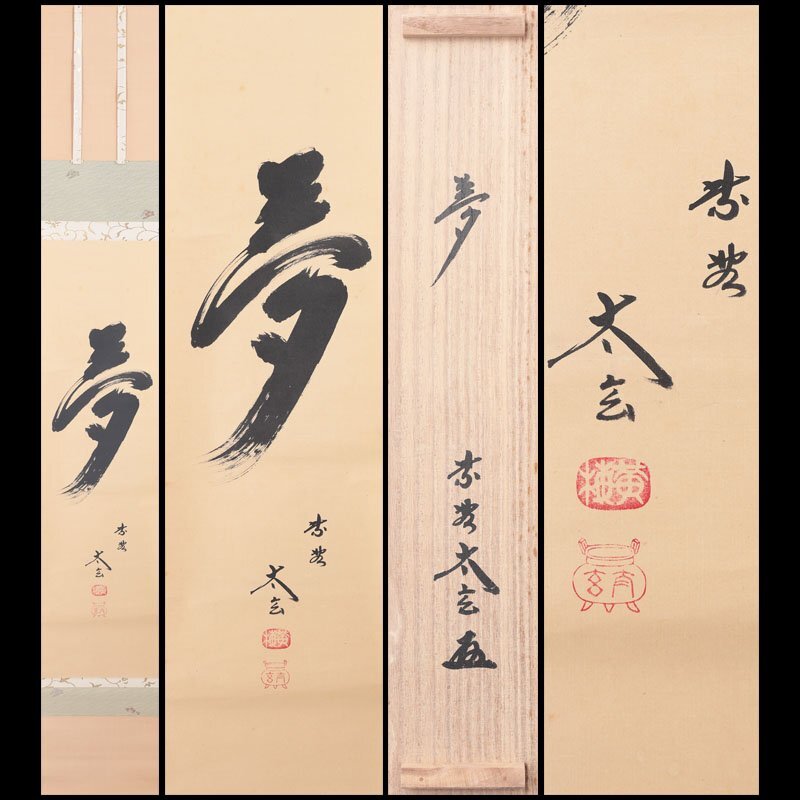 夢
紫野
太玄
夢
紫野
太玄
黄梅
夢
紫野太玄
紫野
太玄
黄梅